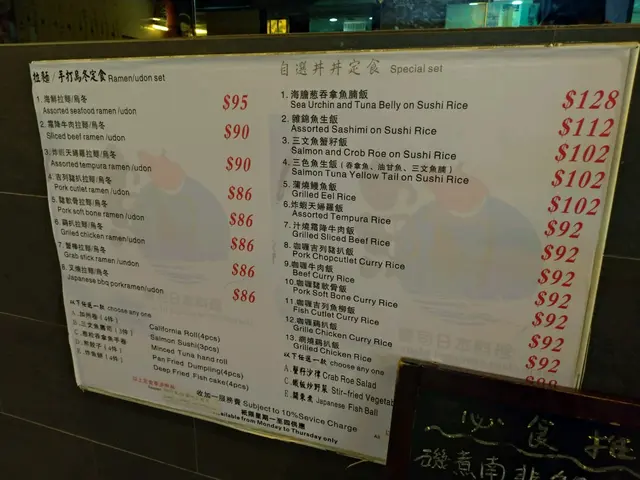 拉麵/手打烏冬定食 Ramen/udon set
1. 海鮮拉麵/烏冬 $95
Assorted seafood ramen /udon
2. 霜降牛肉拉麵/烏冬 $90
Sliced beef ramen /udon
3. 炸蝦天婦羅拉麵/烏冬 $90
Assorted tempura ramen /udon
4. 吉列豬扒拉麵/烏冬 $86
Pork cutlet ramen /udon
5. 豬軟骨拉麵/烏冬 $86
Pork soft bone ramen /udon
6. 鷄扒拉麵/烏冬 $86
Grilled chicken ramen/udon
7. 蟹棒拉麵/烏冬 $86
Grab stick ramen /undon
8. 叉燒拉麵/烏冬 $86
Japanese bbq porkramen/udon
以下任選一款 choose any one
A. 加州卷 (4件) California Roll(4pcs)
B. 三文魚壽司 (3件) Salmon Sushi(3pcs)
Minced Tuna hand roll
D. 煎餃子 (4件) Pan Fried Dumpling(4pcs)
E. 炸魚餅 (4件) Deep Fried Fish cake(4pcs)
自選丼丼定食 Special set
1. 海膽葱吞拿魚腩飯 $128
Sea Urchin and Tuna Belly on Sushi Rice
2. 雜錦魚生飯 $112
Assorted Sashimi on Sushi Rice
3. 三文魚蟹籽飯 $102
Salmon and Crob Roe on Sushi Rice
4. 三色魚生飯 (吞拿魚、油甘魚、三文魚腩) $102
Salmon Tuna Yellow Tail on Sushi Rice
5. 蒲燒鰻魚飯 $102
Grilled Eel Rice
6. 炸蝦天婦羅飯 $92
Assorted Tempura Rice
7. 汁燒霜降牛肉飯 $92
Grilled Sliced Beef Rice
8. 咖喱吉列豬扒飯 $92
Pork Chopcutlet Curry Rice
9. 咖喱牛肉飯 $92
Beef Curry Rice
10. 咖喱豬軟骨飯 $92
Pork Soft Bone Curry Rice
11. 咖喱吉列魚柳飯 $92
Fish Cutlet Curry Rice
12. 咖喱鷄扒飯 $92
Grille Chicken Curry Rice
13. 燒鷄扒飯
Grilled Chicken Rice
以下任選一款 choose any one
A. 蟹籽沙律 Crab Roe Salad
C. 炒野菜 Stir-fried Vegetab
E. 關東煮 Japanese Fish Ball
收加一服務費 Subject to 10%Sevice Charge
祇限星期一至四供應
vailable from Monday to Thursday only
必食
磯煮南